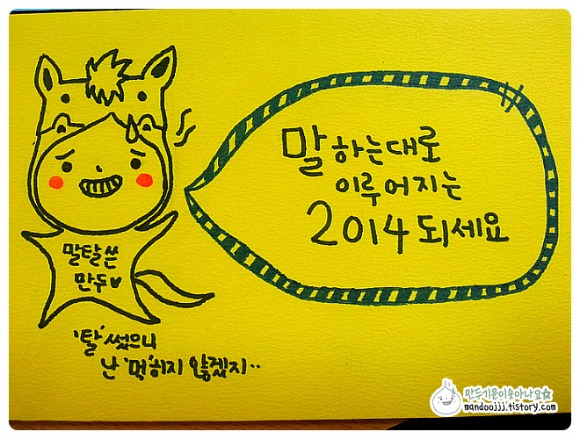 말하는대로
이루어지는
2014 되세요
말탈쓴
만두♥
'탈'썼으니
난 '먹'히지 않겠지..
만두기운이솟아나요☆
mandoojjj.tistory.com